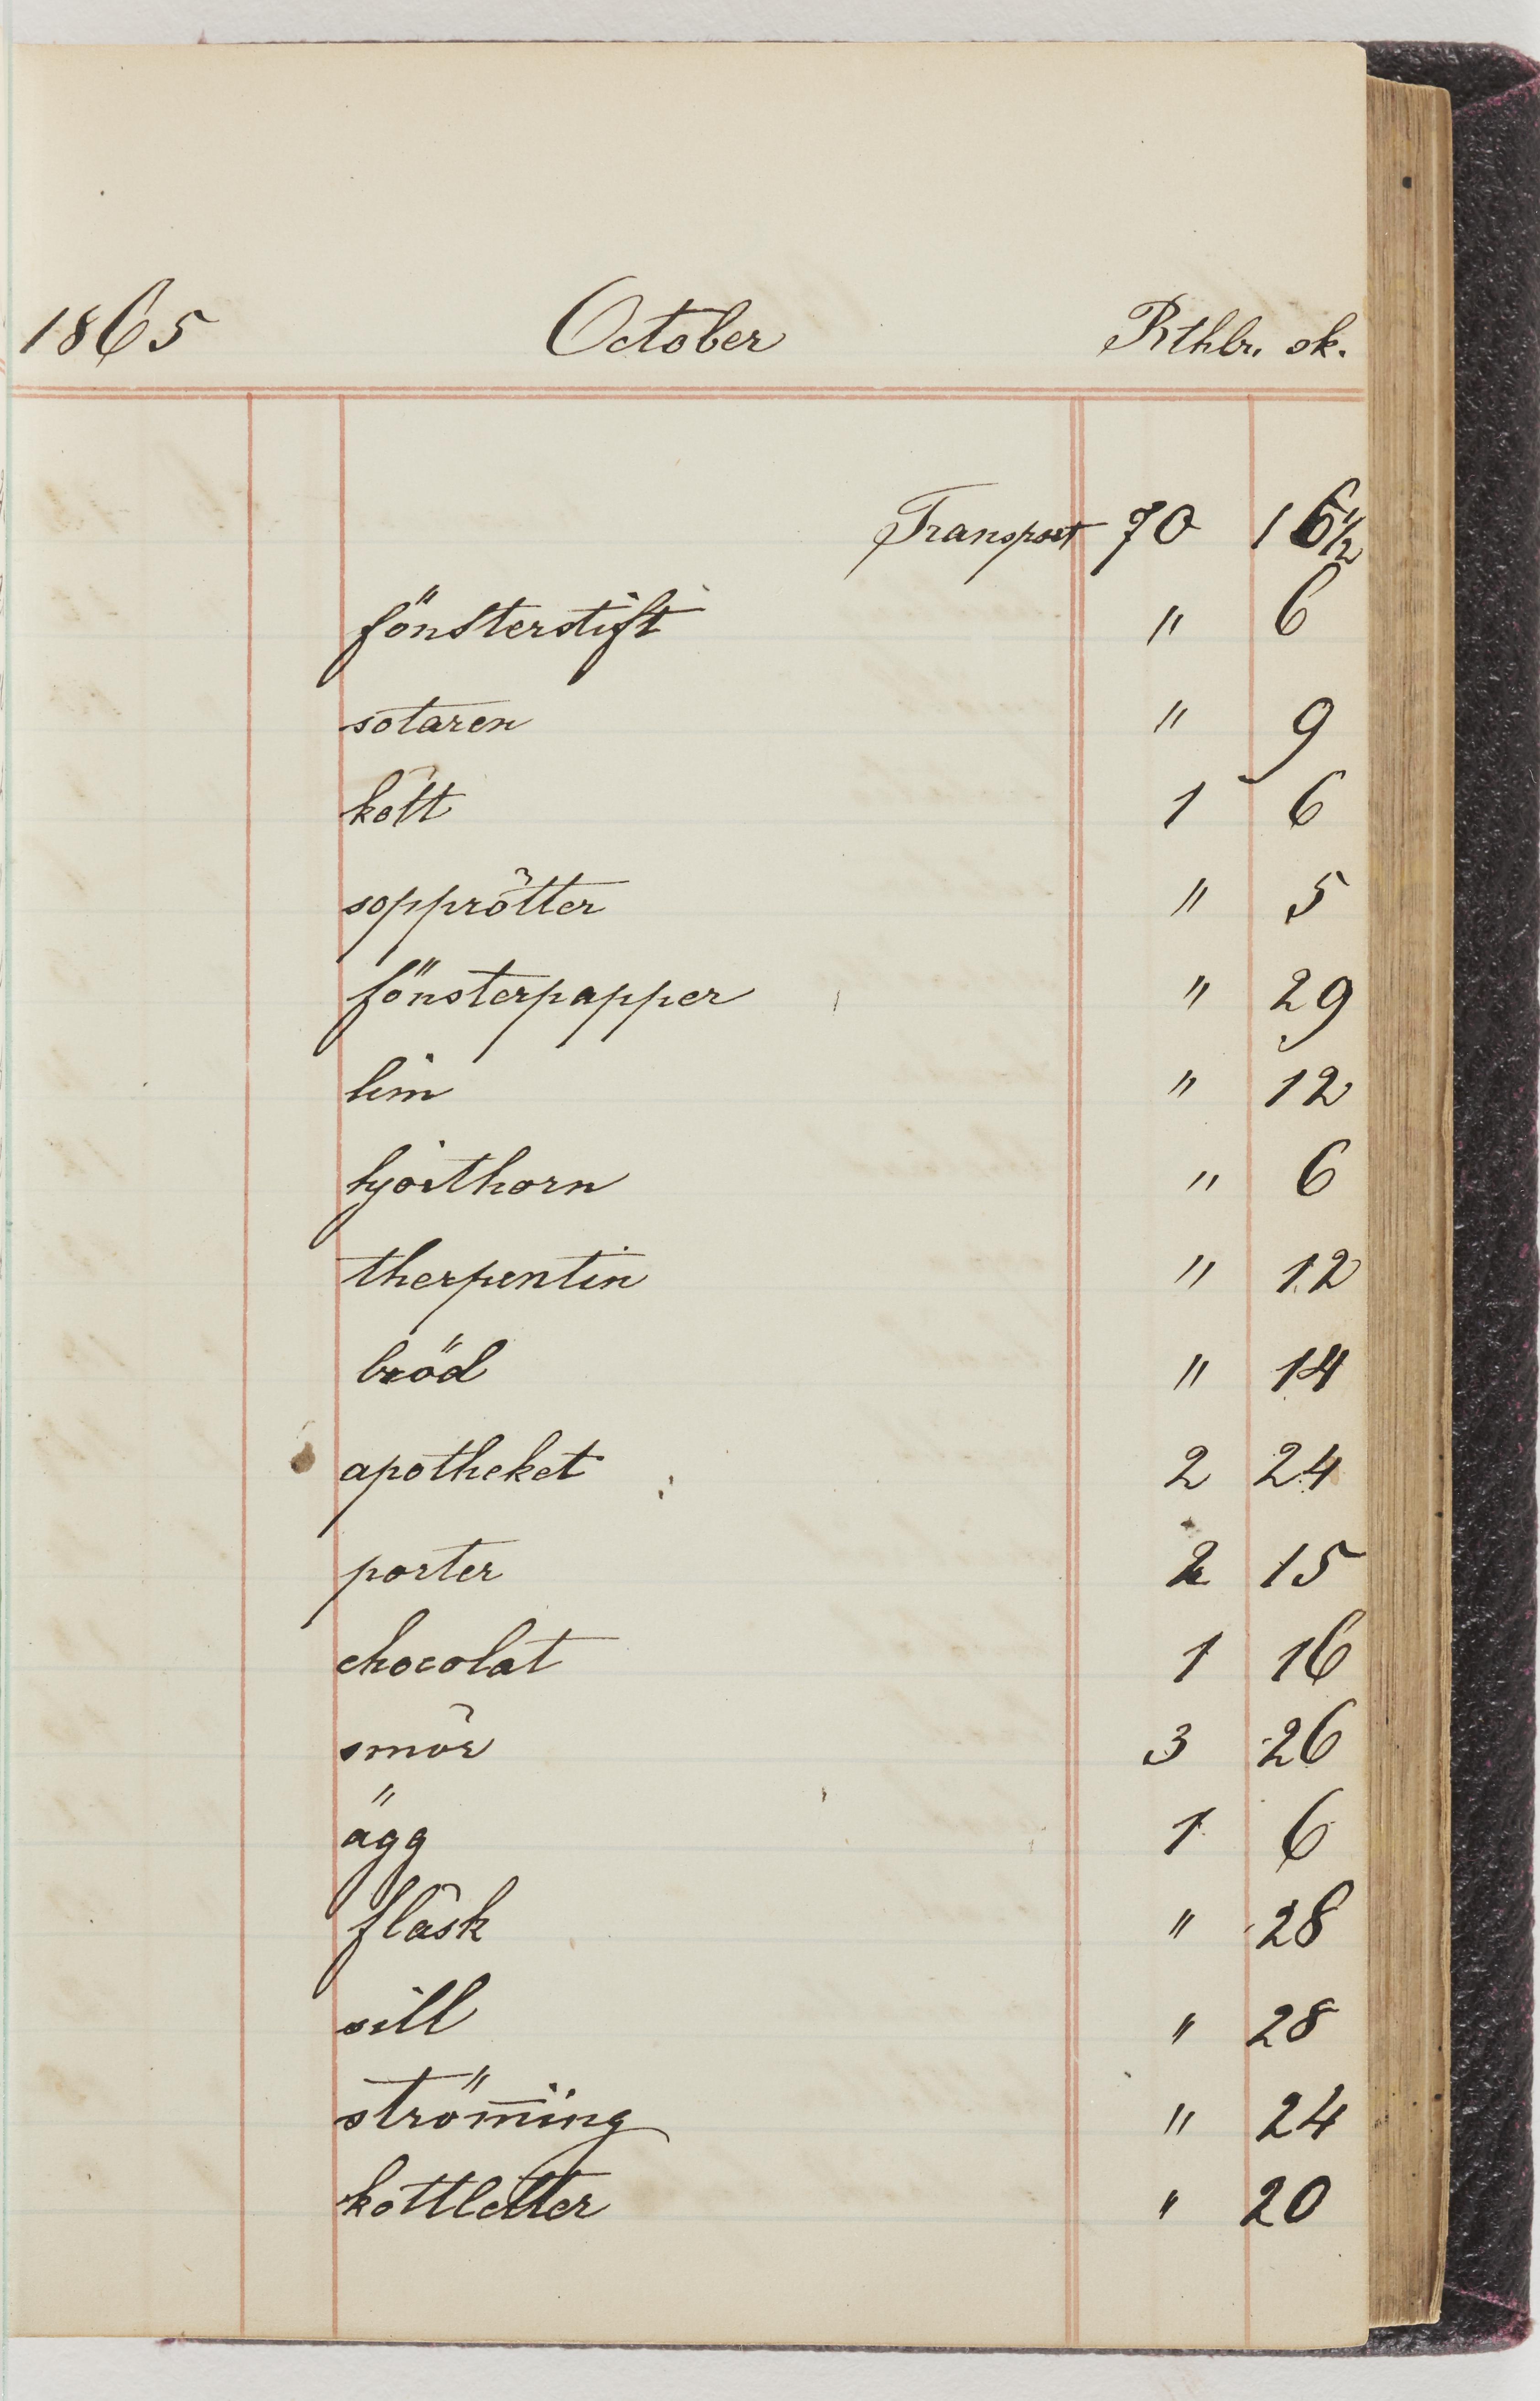 1865 October Rthlr. sk.
Transport 70 16 1/2
fönsterstift " 6
sotaren " 9
kött 1 6
sopprötter " 5
fönsterpapper " 29
lim " 12
hjorthorn " 6
therpentin " 12
bröd " 14
apotheket 2 24
porter 2 15
chocolat 1 16
smör 3 26
ägg 1 6
fläsk " 28
sill " 28
strömīng " 24
kottletter " 20